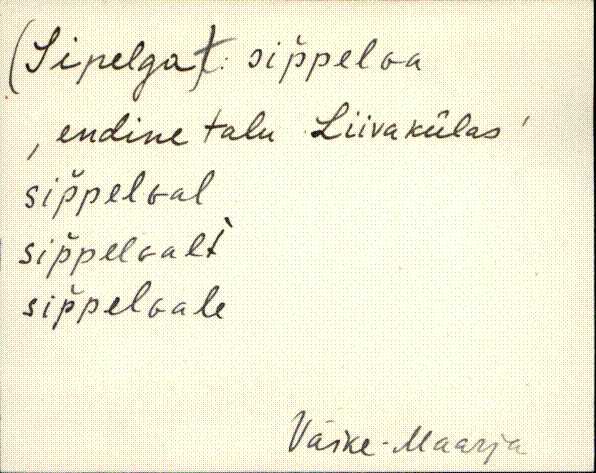 (Sipelga): sip̆pelɢa
, endine talu Liivakülas '
sip̆pelɢal
sip̆pelɢalt̀
sip̆pelɢale
Väike-Maarja